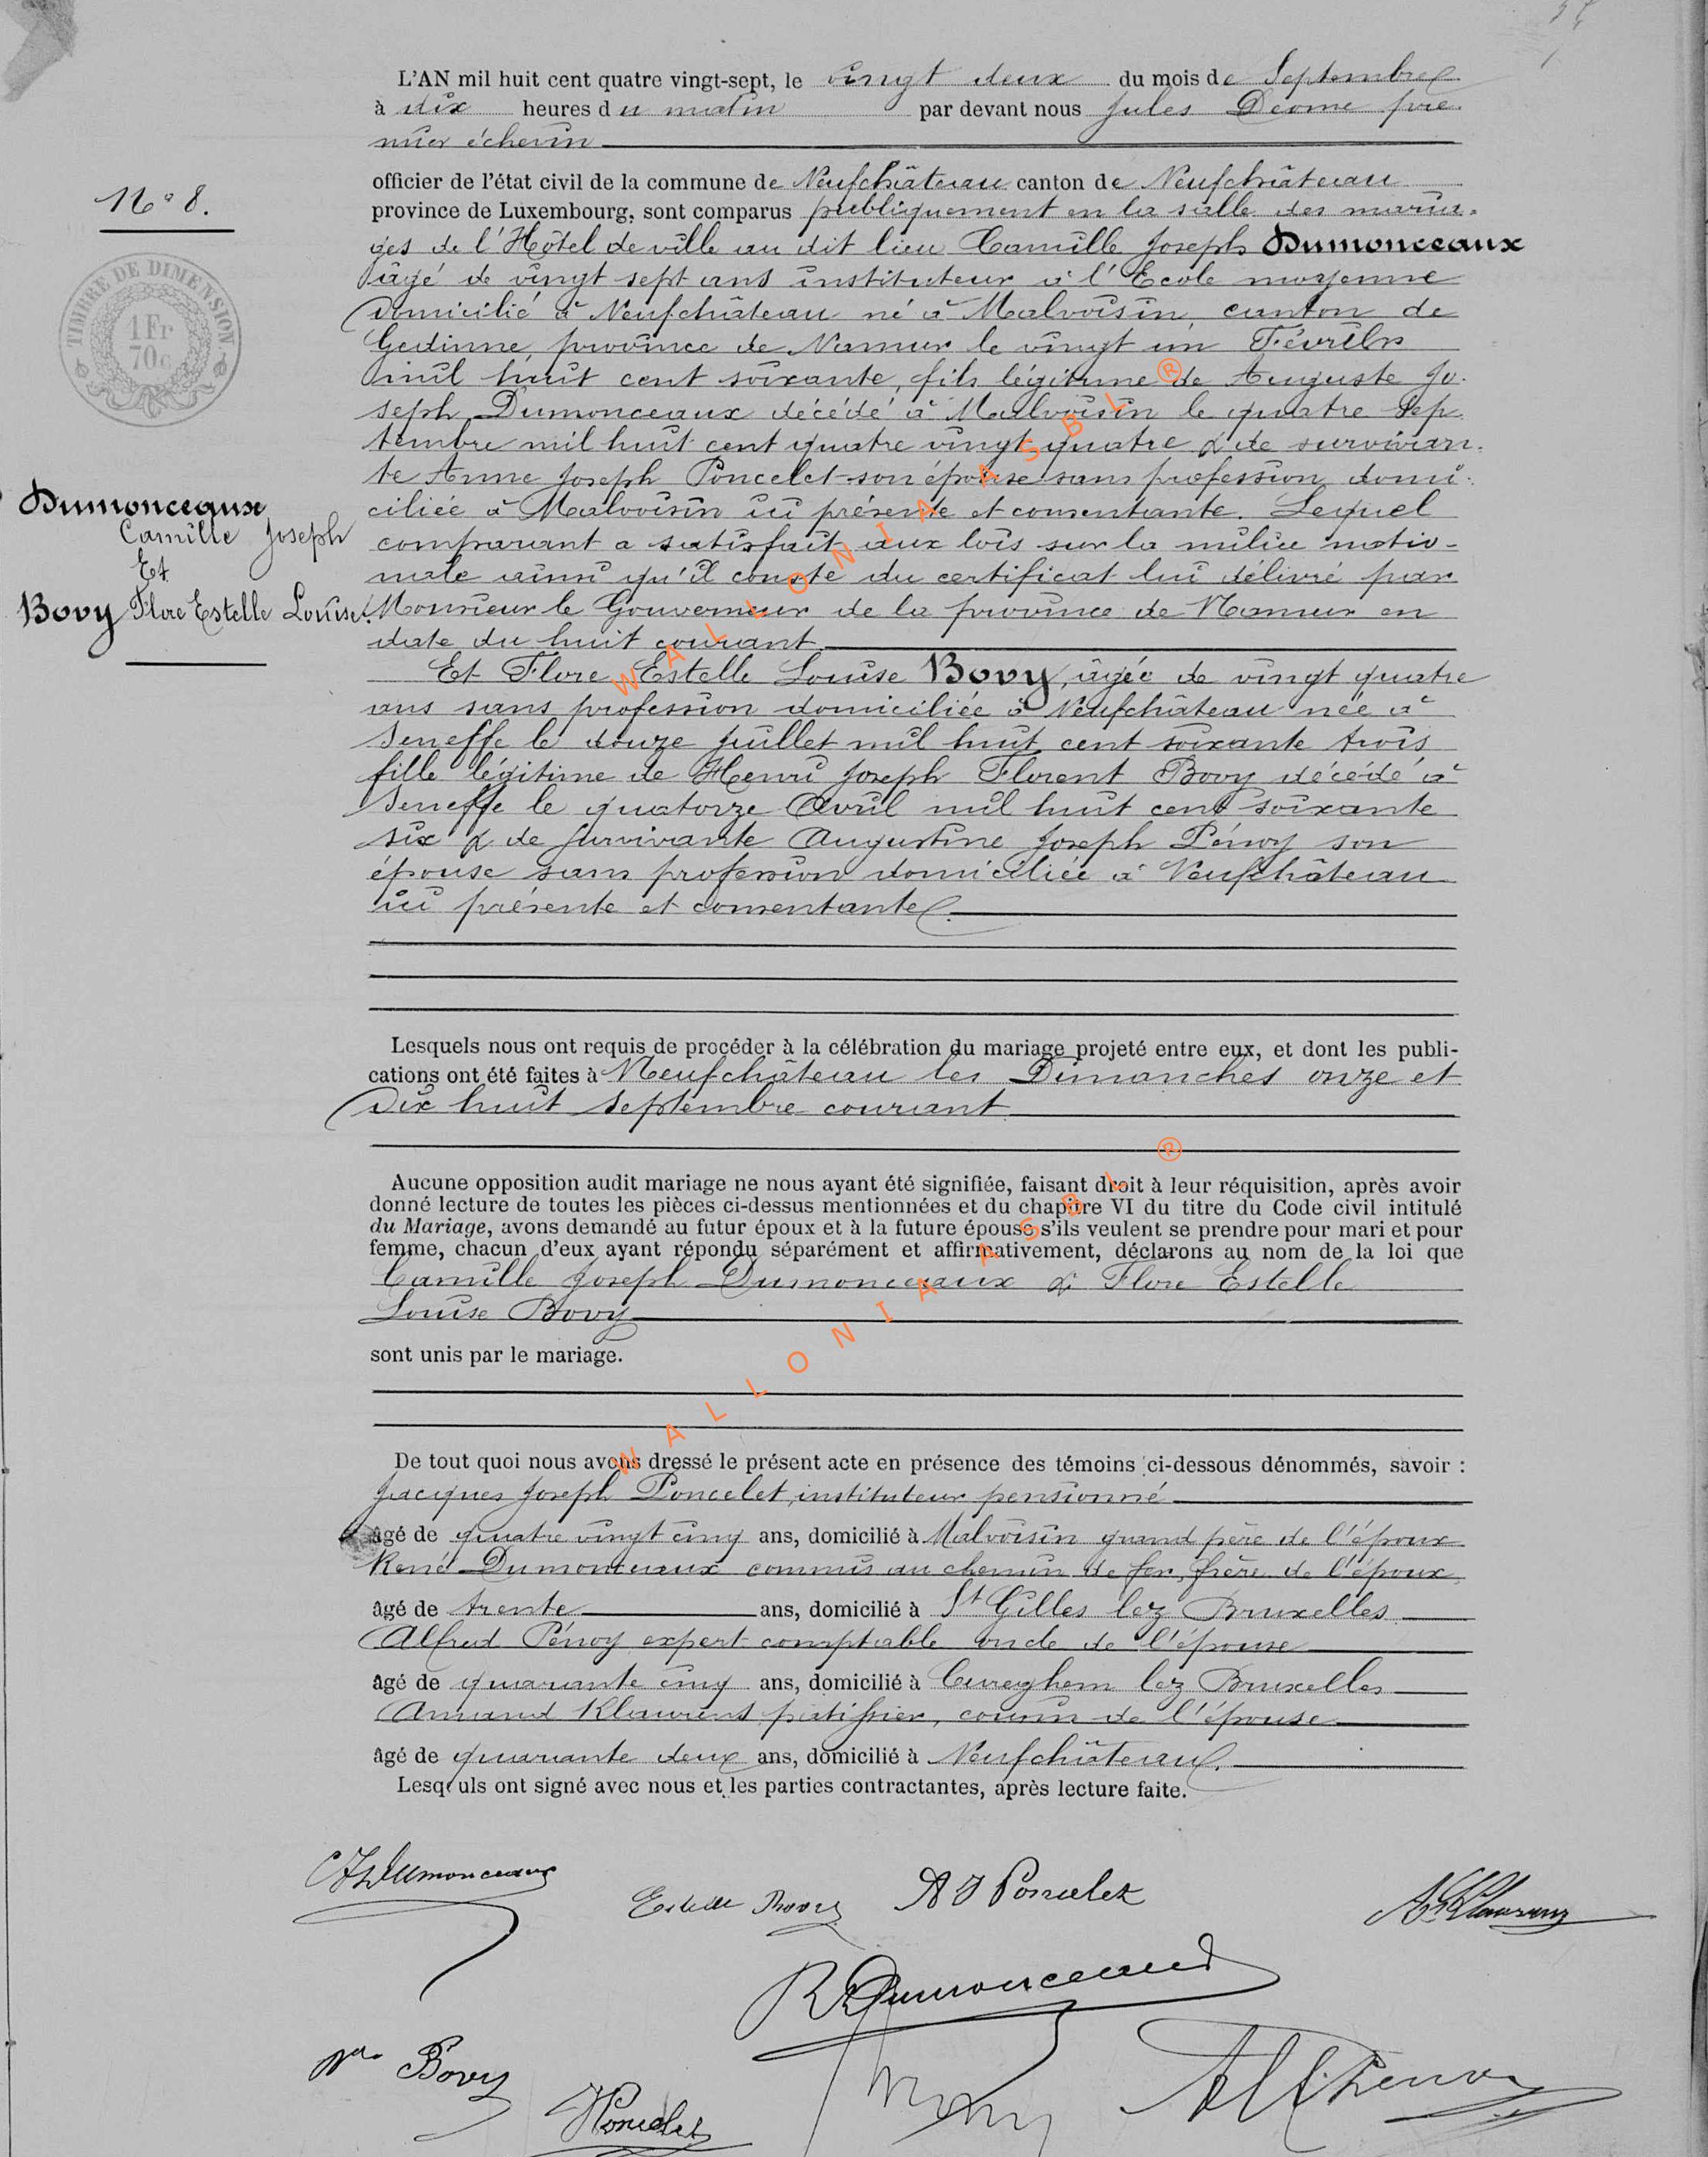 L'AN mil huit cent quatre vingt-sept, le vingt deux du mois de Septembre
à dix heures du matin par devant nous Jules Deome pre
mier échevin
officier de l'état civil de la commune de Neufchâteau canton de Neufchâteau
province de Luxembourg, sont comparus publiquement en la salle des maria-
ges de l'Hôtel de ville au dit lieu Camille Joseph Dumonceaux
âgé de vingt sept ans instituteur à l'Ecole moyenne
domicilié à Neufchâteau né à Malvoisin, canton de
Gedinne, province de Namur le vingt un Février
mil huit cent soixante, fils légitime de Auguste Jo-
seph Dumonceaux décédé à Malvoisin le quatre Sep-
tembre mil huit cent quatre vingt quatre & de survivan-
te Anne Joseph Poncelet son épouse sans profession domi-
ciliée à Malvoisin ici présente et consentante. Lequel
comparant a satisfait aux lois sur la milice natio-
nale ainsi qu'il conste du certificat lui délivré par
Monsieur le Gouverneur de la province de Namur en
date du huit courant.
Et Flore Estelle Louise Bovy, âgée de vingt quatre
ans sans profession domiciliée à Neufchâteau née à
Seneffe le douze Juillet mil huit cent soixante trois
fille légitime de Henri Joseph Florent Bovy décédé à
Seneffe le quatorze Avril mil huit cent soixante
six & de survivante Augustine Joseph Pénoy son
épouse sans profession domiciliée à Neufchâteau
ici présente et consentante.
No 8.
TIMBRE DE DIMENSION
1 Fr
70c
Dumonceaux
Camille Joseph
Et
Bovy Flore Estelle Louise.
Lesquels nous ont requis de procéder à la célébration du mariage projeté entre eux, et dont les publi-
cations ont été faites à Neufchâteau les Dimanches onze et
dix huit septembre courant
Aucune opposition audit mariage ne nous ayant été signifiée, faisant droit à leur réquisition, après avoir
donné lecture de toutes les pièces ci-dessus mentionnées et du chapitre VI du titre du Code civil intitulé
du Mariage, avons demandé au futur époux et à la future épouse s'ils veulent se prendre pour mari et pour
femme, chacun d'eux ayant répondu séparément et affirmativement, déclarons au nom de la loi que
Camille Joseph Dumonceaux & Flore Estelle
Louise Bovy
sont unis par le mariage.
De tout quoi nous avons dressé le présent acte en présence des témoins ci-dessous dénommés, savoir :
Jacques Joseph Poncelet, instituteur pensionné
âgé de quatre vingt cinq ans, domicilié à Malvoisin grand père de l'époux
René Dumonceaux commis au chemin de fer, frère de l'époux
âgé de trente ans, domicilié à St Gilles lez Bruxelles
Alfred Pénoy expert comptable oncle de l'épouse
âgé de quarante cinq ans, domicilié à Cureghem lez Bruxelles
Armand Klaurens patissier, cousin de l'épouse
âgé de quarante deux ans, domicilié à Neufchâteau.
Lesq uls ont signé avec nous et les parties contractantes, après lecture faite.
Dumonceaux
Estelle Bovy
A J Poncelet
R Dumonceaux
Bovy
Poncelet
WALLONIA ASBL ®
WALLONIA ASBL ®